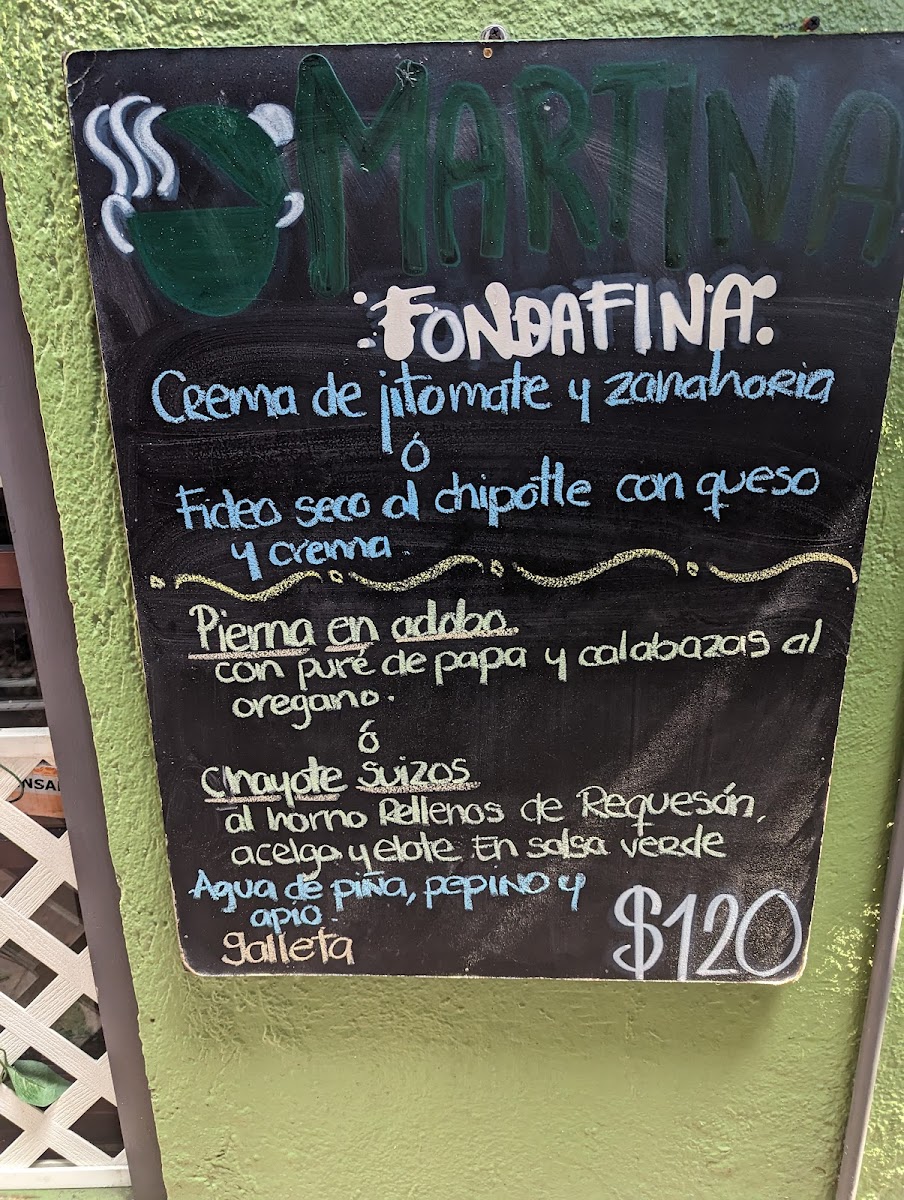 MARTINA
FONDA FINA
Crema de jitomate y zanahoria
ó
Fideo seco al chipotle con queso
y crema.
Pierna en adobo.
con puré de papa y calabazas al
oregano.
ó
Chayote suizos
al horno Rellenos de Requesón,
acelga y elote. En salsa verde
Agua de piña, pepino y
apio.
galleta
$120